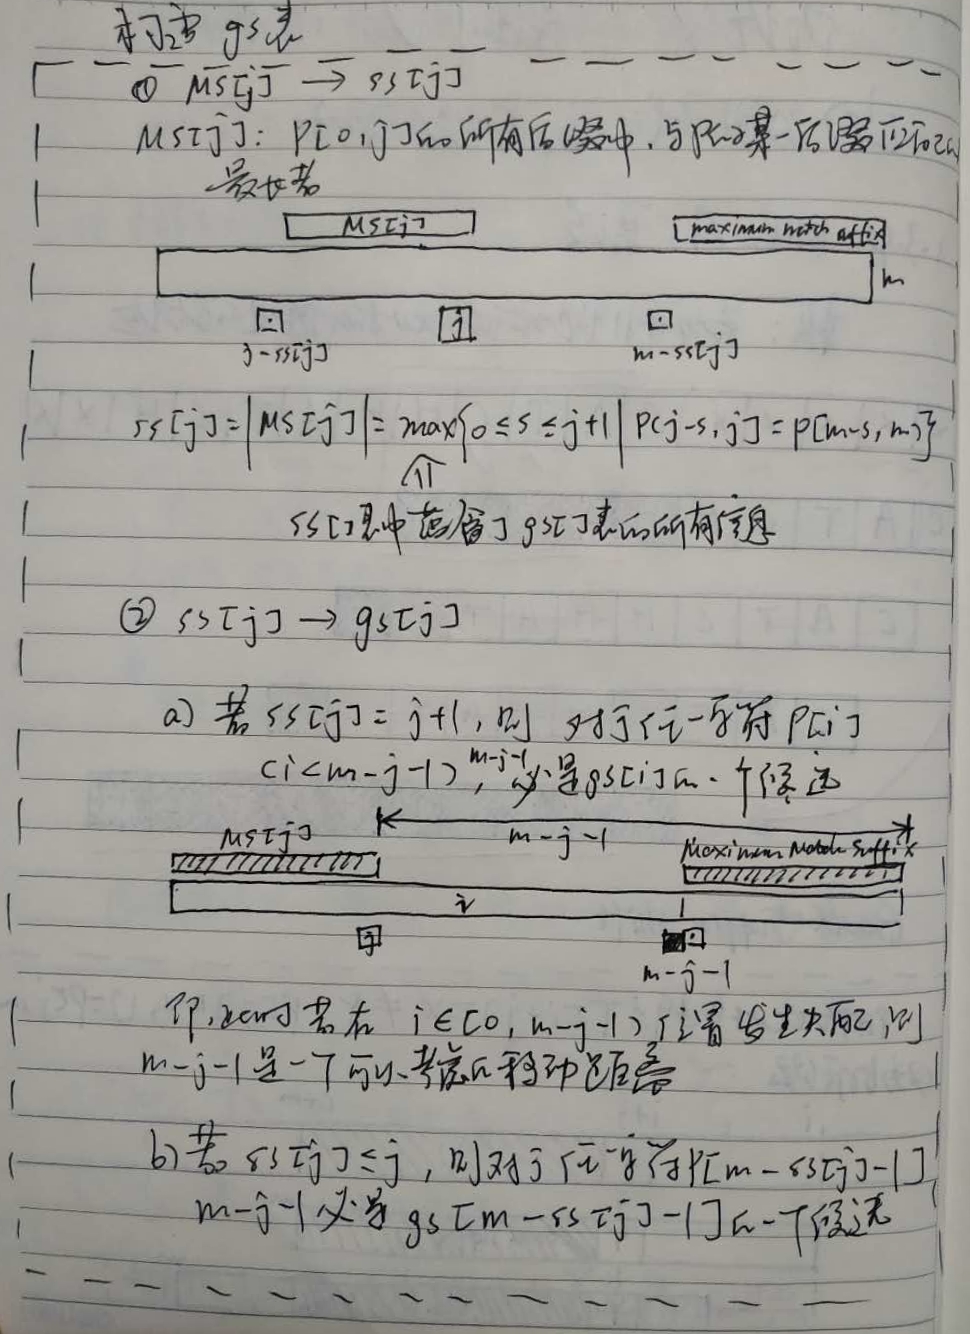 构造 gs表
① MS[j] → ss[j]
MS[j]: P[0,j]的所有后缀中,与P的某一后缀匹配的
最长者
MS[j]
maximum match suffix
m
j
j-ss[j]
m-ss[j]
ss[j]=|MS[j]|=max{0≤s≤j+1|P(j-s,j]=P[m-s,m)}
⇑
ss[]表中蕴含了gs[]表的所有信息
② ss[j] → gs[j]
a) 若 ss[j]=j+1, 则 对于任一字符 P[i]
(i<m-j-1), m-j-1 必是gs[i]的一个候选
MS[j]
m-j-1
Maximum Match Suffix
i
j
m-j-1
即,此时若在 i∈[0,m-j-1)位置发生失配,则
m-j-1是一个可以考虑的移动距离
b) 若 ss[j]≤j, 则对于任一字符P[m-ss[j]-1]
m-j-1必是 gs[m-ss[j]-1]的一个候选